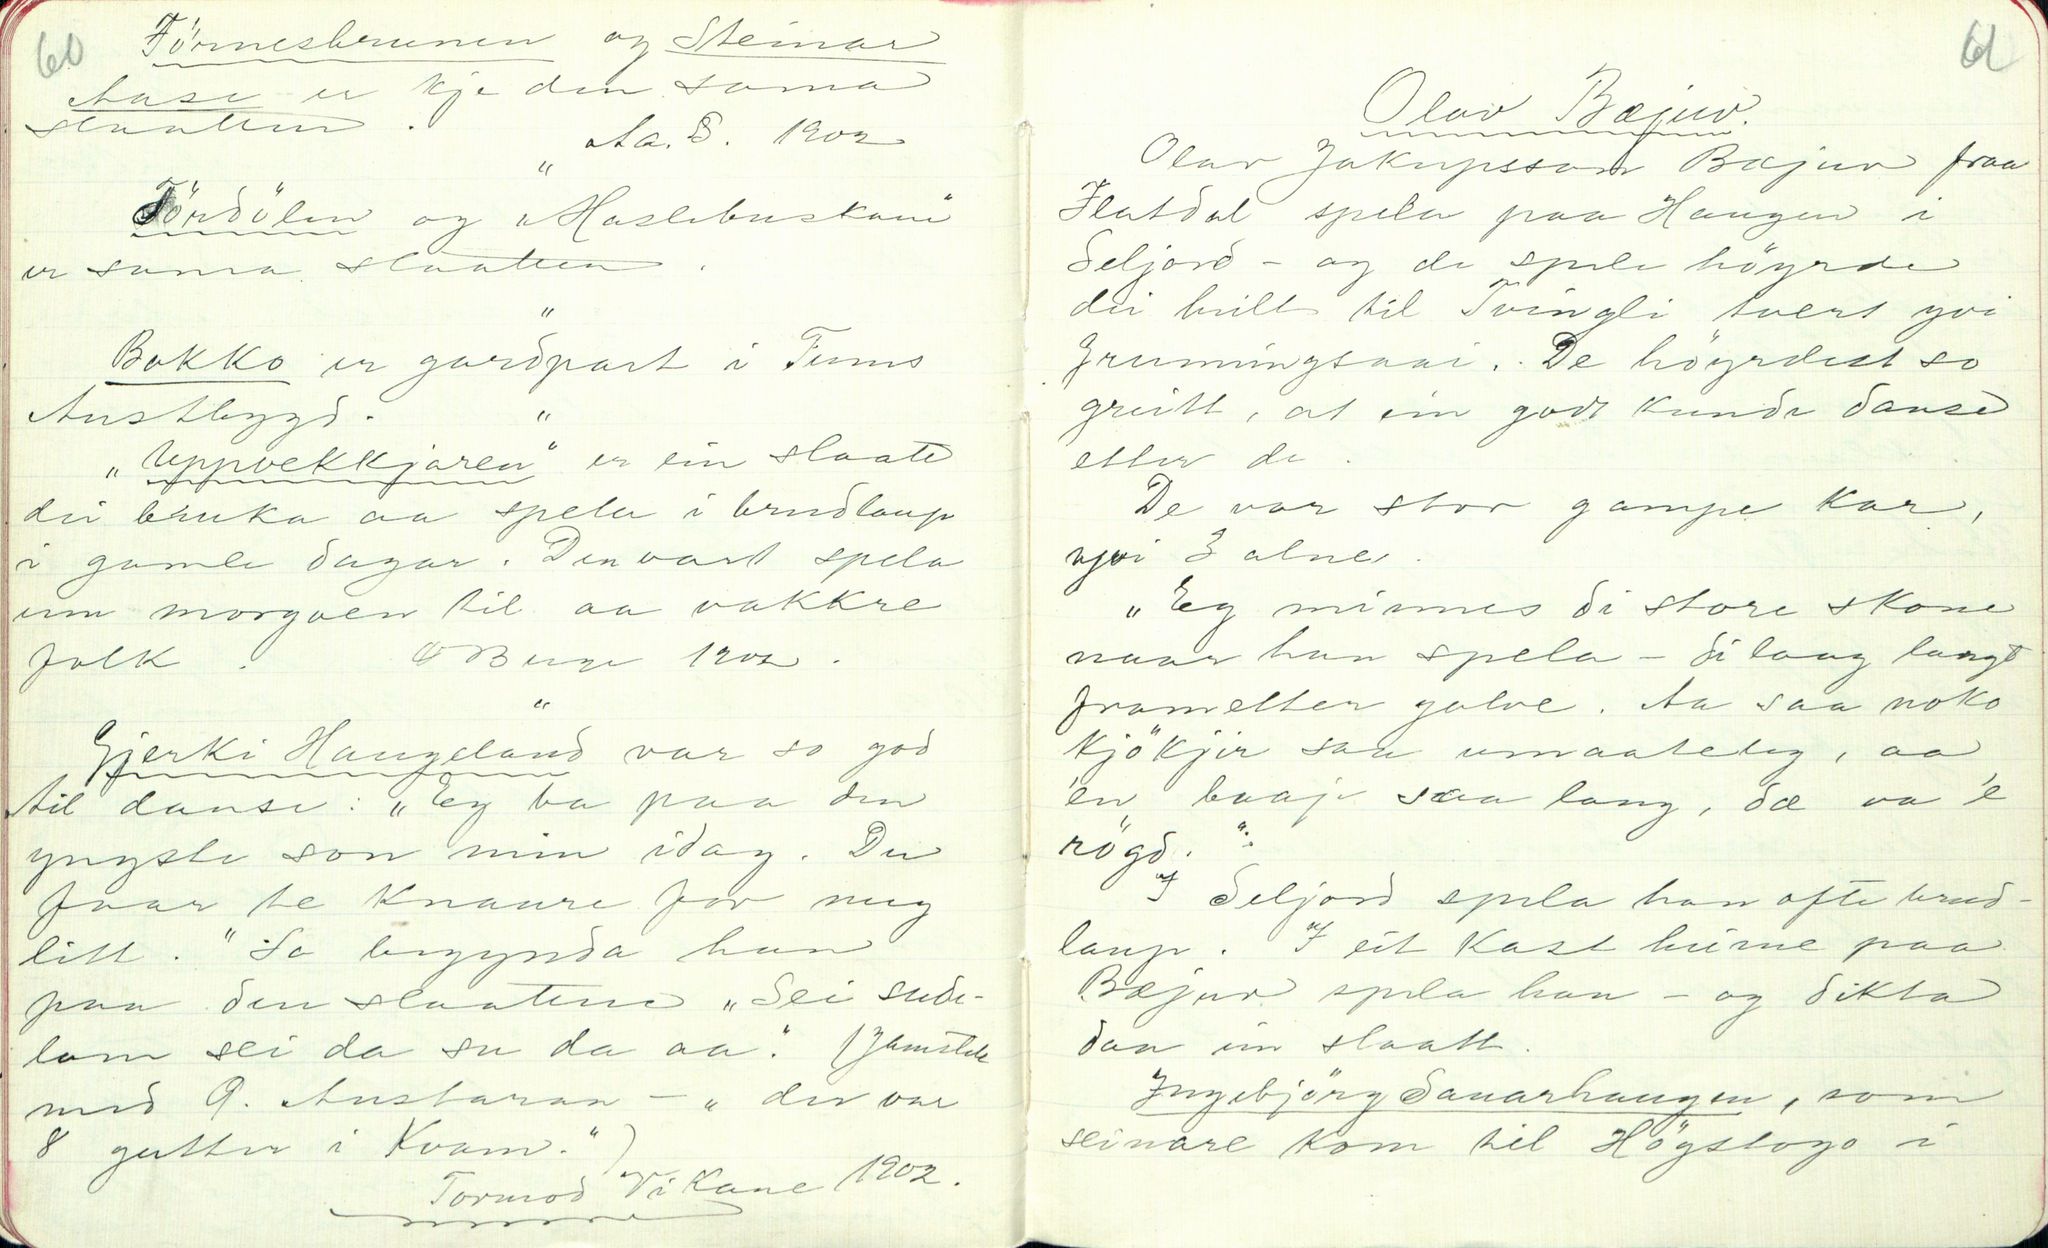 60
Förnesbrunen og Steinar
Aase er kje den sama
slaatten.
Aa. S. 1902
"
Fördölen og „Haslebuskane"
er sama slaatten.
"
Bakko er gardpart i Tuns
Austbygd.
"
„Uppvekkjaren" er ein slaatt
dei bruka aa spela i brudlaup
i gamle dagar. Den vart spela
um morgoen til aa vakkre
folk. O Berge 1902.
"
Gjerki Haugeland var so god
til danse: „Eg ba paa den
yngste son min idag. Du
faar te knaure for meg
litt." So begynda han
paa den slaatten „Sei sude-
lam sei da su da aa." (Jamför
med O. Austaran – „der var
8 gutter i Kvam.")
Tormod Vikane 1902.
61
Olav Bæjuv.
Olav Jakupsson Bæjuv fraa
Flatdal spela paa Haugen i
Seljord – og de spele höyrde
dei heilt til Tvingli tvert yvi
Grunningsaai. De höyrdest so
greitt, at ein godt kunde danse
etter de.
De var stor gampe kar,
yvi 3 alner.
„Eg minnes di store skone
naar han spela – di laag langt
frametter golve. Aa saa noko
kjökjir saa umaateleg, aa
'en baaje saa lang, dæ va 'e
rögd.":
I Seljord spela han ofte brud-
laup. I eit kast heime paa
Bæjuv spela han – og dikta
daa ein slaatt.
Ingebjörg Sanarhaugen, som
seinare kom til Högstogo i